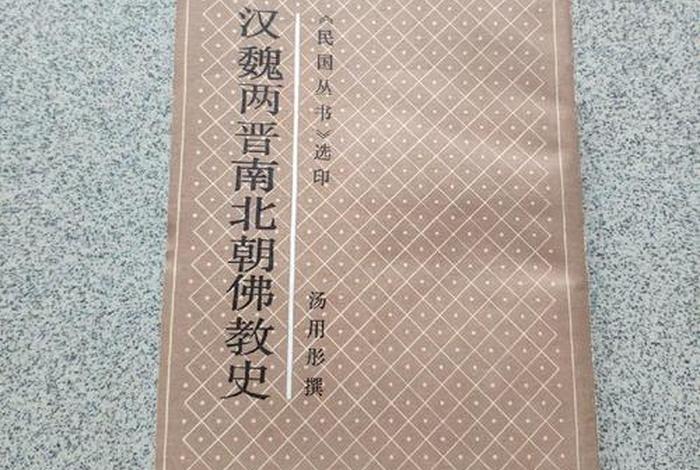 汉魏两晋南北朝佛教史
《民国丛书》选印
汤用彤撰